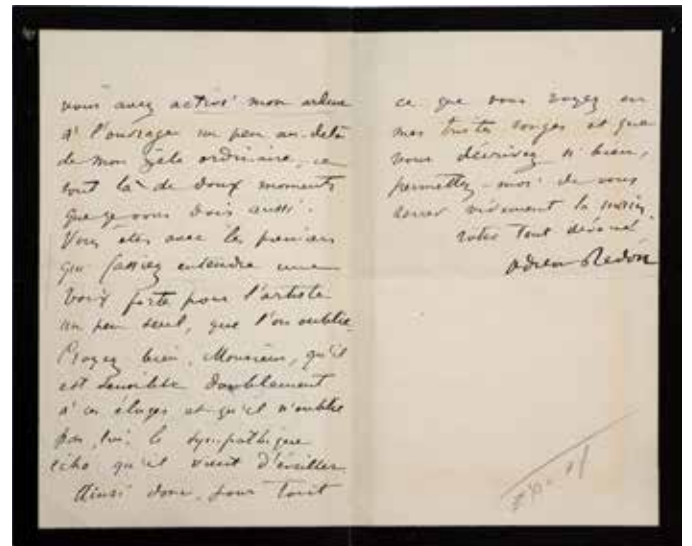 vous avez activé mon ardeur
à l'ouvrage un peu au-delà
de mon zèle ordinaire, ce
sont là de doux moments
que je vous dois aussi.
Vous êtes avec les premiers
qui fassiez entendre une
voix forte pour l'artiste
un peu seul, que l'on oublie.
Croyez bien, Monsieur, qu'il
est sensible doublement
à ces éloges et qu'il n'oublie
pas, lui, le sympathique
écho qu'il vient d'éveiller.
Ainsi donc, pour tout
ce que vous voyez en
mes tristes songes et que
vous décrivez si bien,
permettez-moi de vous
serrer vivement la main.
votre tout dévoué
odilon Redon